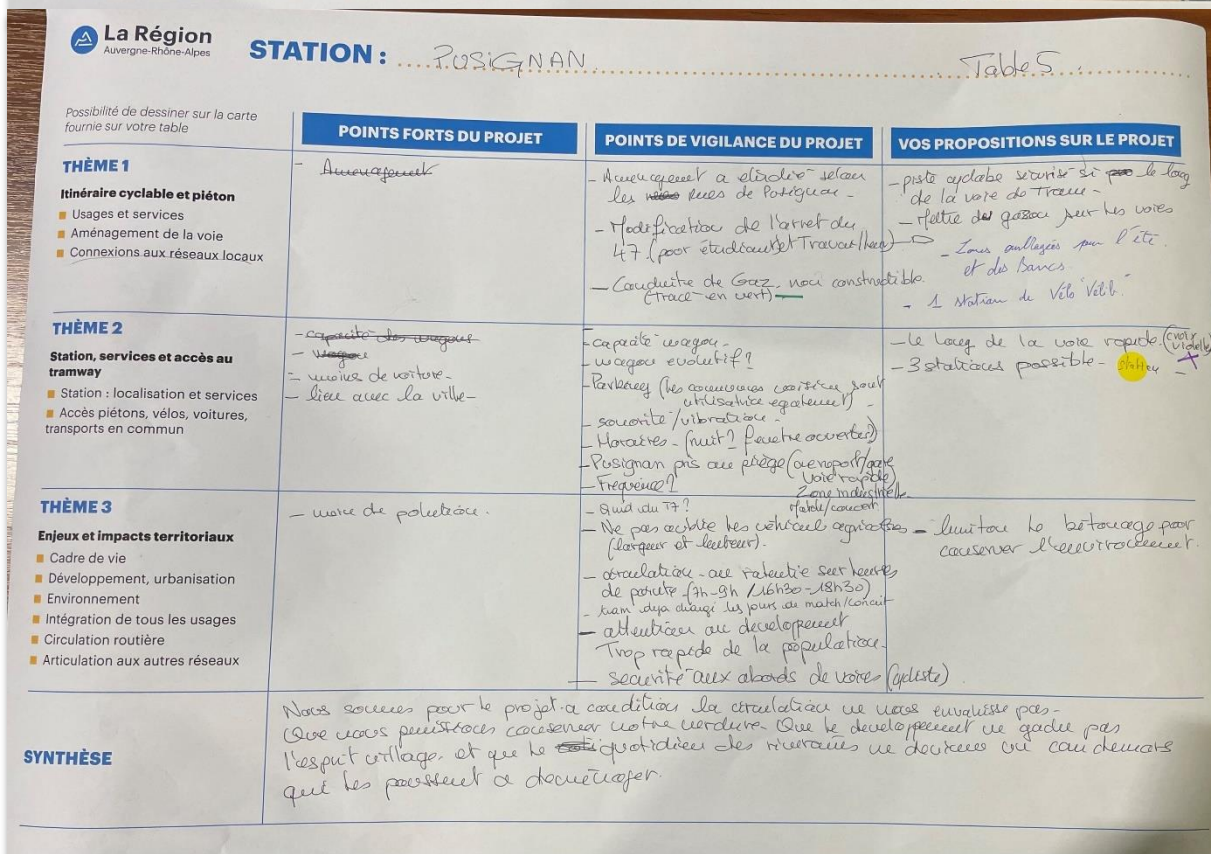 La Région
Auvergne-Rhône-Alpes
STATION : PUSIGNAN
Table 5
Possibilité de dessiner sur la carte
fournie sur votre table
POINTS FORTS DU PROJET
POINTS DE VIGILANCE DU PROJET
VOS PROPOSITIONS SUR LE PROJET
THÈME 1
Itinéraire cyclable et piéton
Usages et services
Aménagement de la voie
Connexions aux réseaux locaux
- Amenagement
- Amenagement a elaslir selon
les rues de Pusignan -
- Modification de l'arret du
47 (pour étudiant et Travail
- Conduite de Gaz. non constructible.
(tracé en vert) -
- piste cyclabe sécurisé si le long
de la voie do Tram -
- Mettre du gazon sur les voies
- Zones ombragées pour l'été
et des Bancs.
- 1 station de Vélo "Velib"
THÈME 2
Station, services et accès au
tramway
Station : localisation et services
Accès piétons, vélos, voitures,
transports en commun
- capacité des wagons
- wagon
- moins de voiture -
- lien avec la ville -
- capacité wagon -
- wagon evolutif ?
- Parking (les communes voisines sont
utilisatrice egalement) -
- sonorité / vibration -
- Horaires - (nuit ? fenetre ouverte)
- Pusignan pris au piège (aeroport/gare
voie rapide)
Zone industrielle
- Fréquence ?
Match/concert
- le long de la voie rapide (croix
violette)
- 3 stations possible - station - X
THÈME 3
Enjeux et impacts territoriaux
Cadre de vie
Développement, urbanisation
Environnement
Intégration de tous les usages
Circulation routière
Articulation aux autres réseaux
- moins de polution.
- Quid du T7 ?
- Ne pas oublie les véhicul agricoles
(largeur et lenteur).
- circulation - au ralentie sur heures
de pointe - (7h-9h / 16h30-18h30)
- tram deja chargé les jours de match/concert
- attention au developpement
Trop rapide de la population -
- securité aux abords de voies (cycliste)
- limiton le betonage pour
conserver l'environnement.
SYNTHÈSE
Nous sommes pour le projet a condition la circulation ne nous envahisse pas -
Que nous puissions conserver notre verdure. Que le developpement ne gache pas
l'esprit village, et que le quotidien des riverains ne devienne un cauchemars
qui les poussent a demenager.